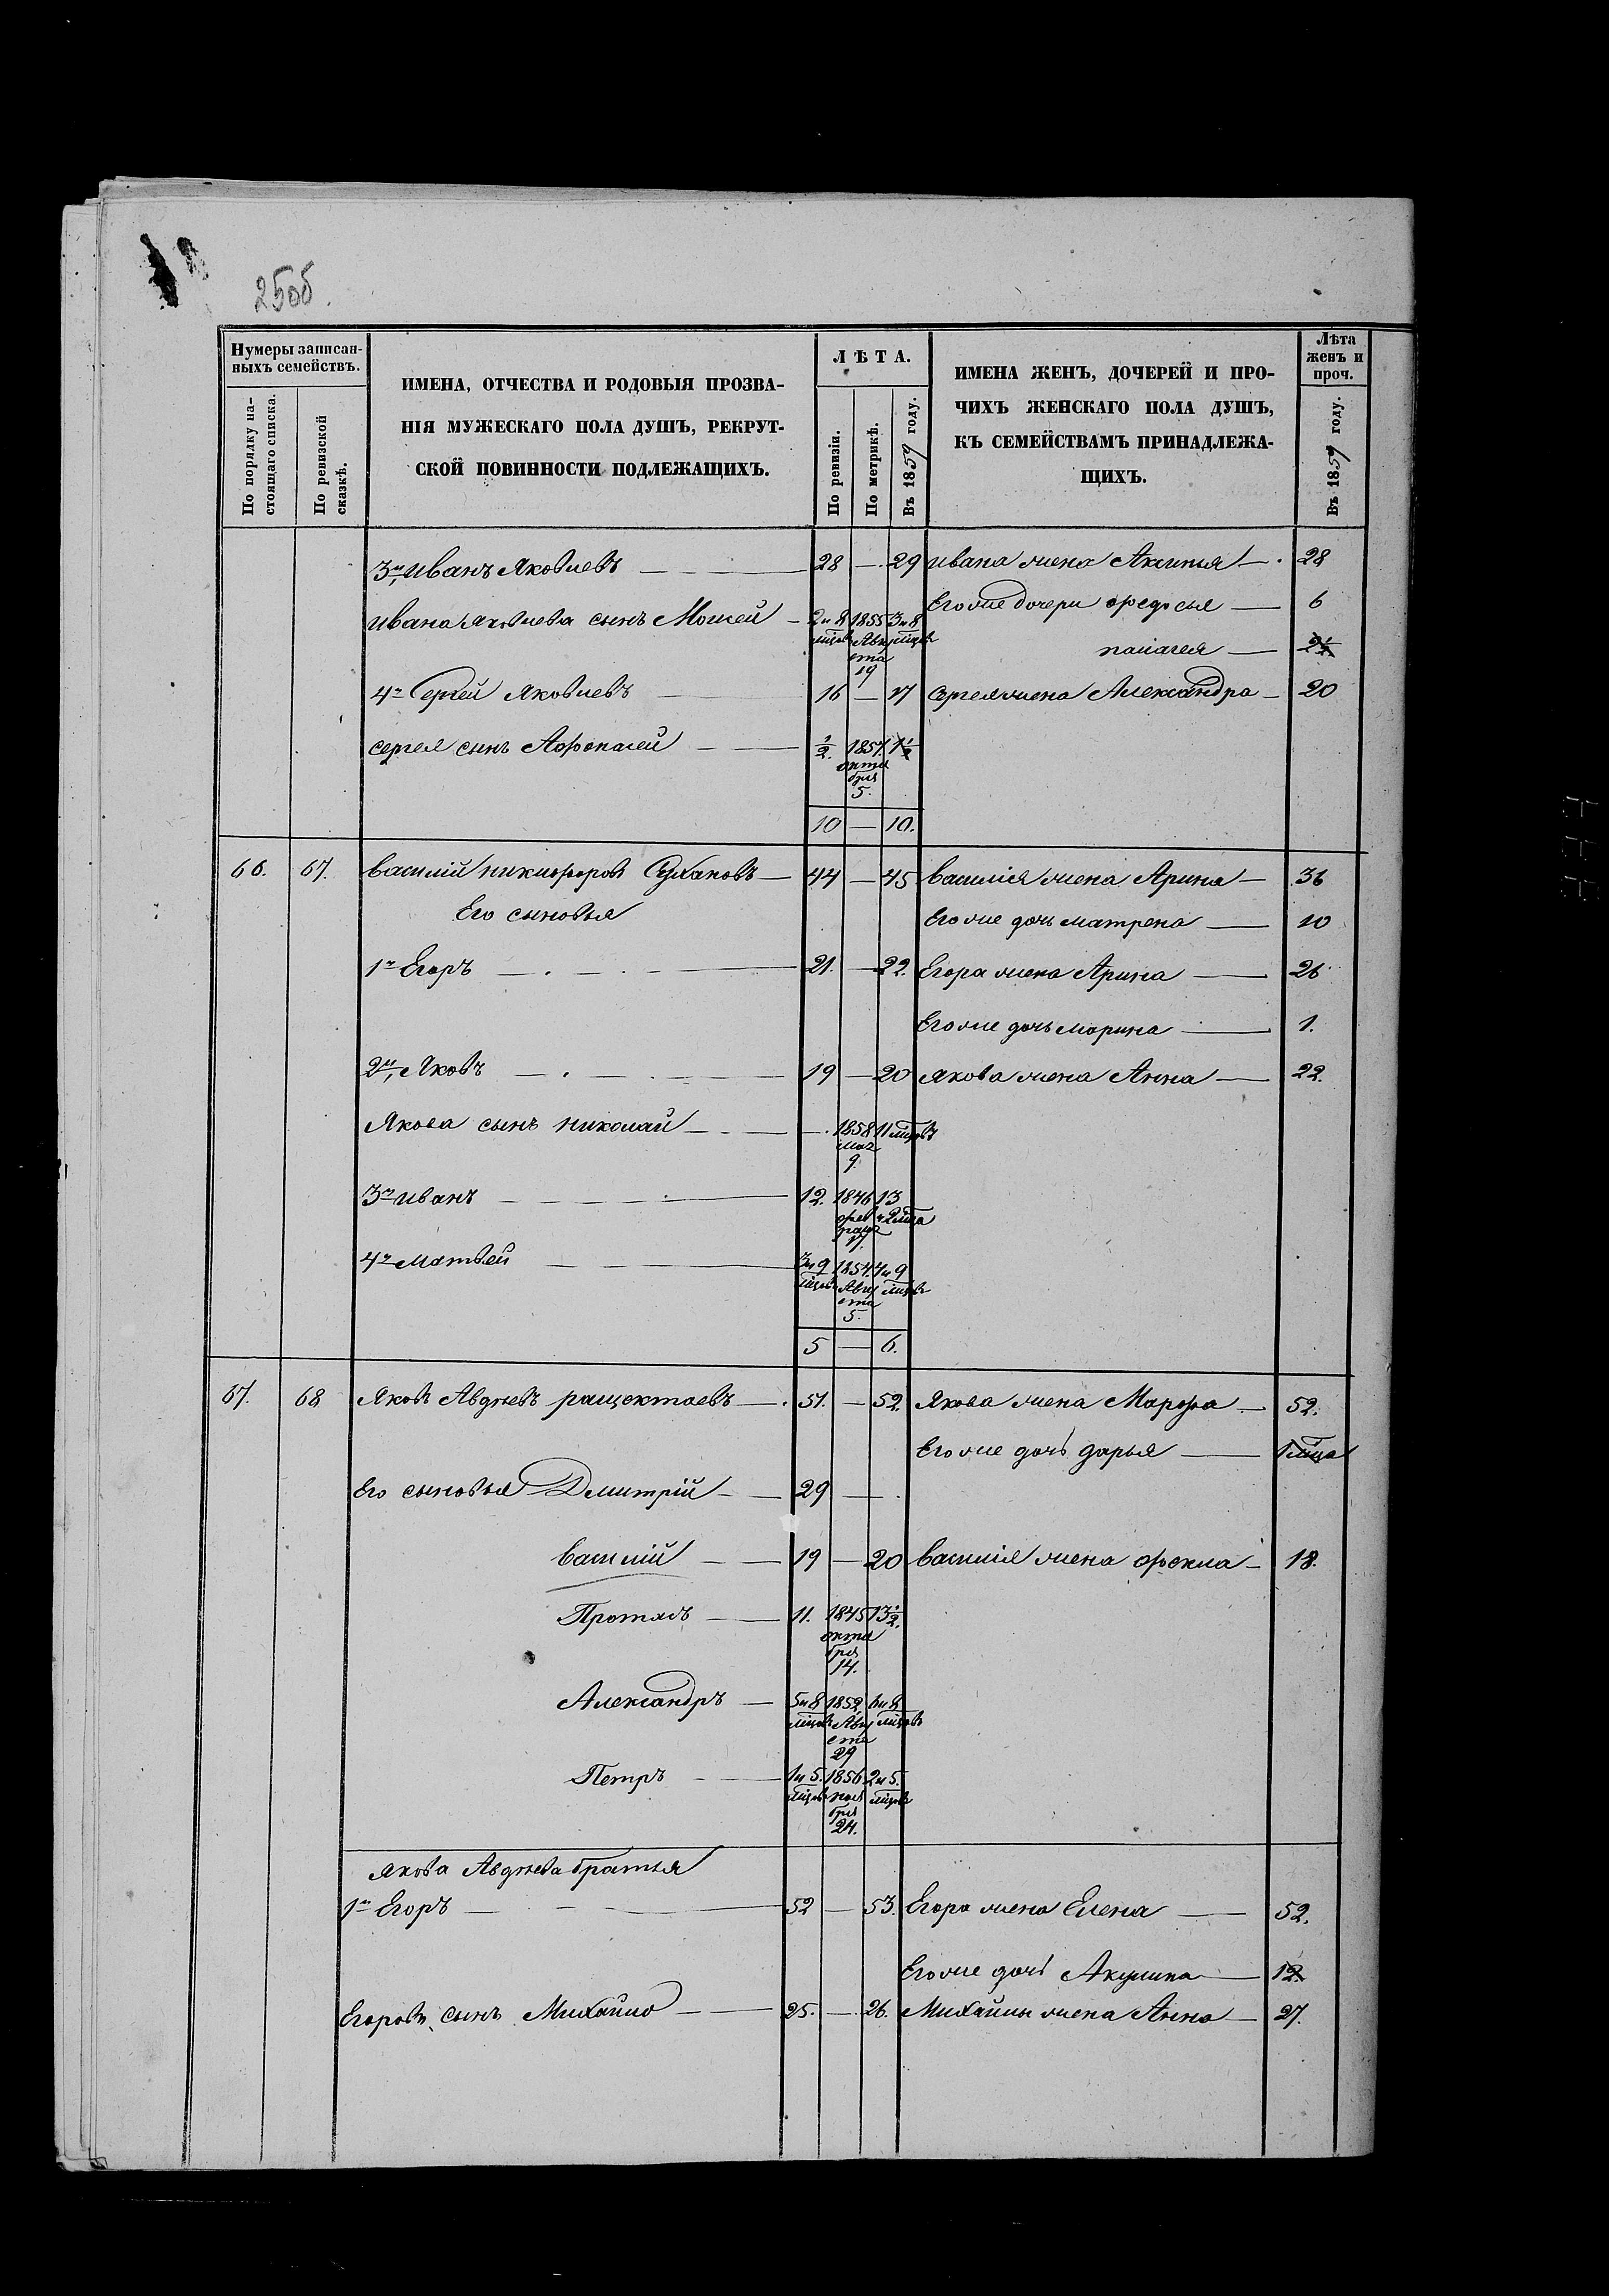 25об.
Нумеры записан-
ныхъ семействъ.
По порядку на-
стоящаго списка.
По ревизской
сказкѣ.
ИМЕНА, ОТЧЕСТВА И РОДОВЫЯ ПРОЗВА-
НІЯ МУЖЕСКАГО ПОЛА ДУШЪ, РЕКРУТ-
СКОЙ ПОВИННОСТИ ПОДЛЕЖАЩИХЪ.
ЛѢТА.
По ревизіи.
По метрикѣ.
Въ 1859 году.
ИМЕНА ЖЕНЪ, ДОЧЕРЕЙ И ПРО-
ЧИХЪ ЖЕНСКАГО ПОЛА ДУШЪ,
КЪ СЕМЕЙСТВАМЪ ПРИНАДЛЕЖА-
ЩИХЪ.
Лѣта
женъ и
проч.
Въ 1859 году.
3й Иванъ Яковлевъ — 28 — 29 Ивана жена Аксинья — 28
Его же дочери Федосья — 6
Ивана Яковлева сынъ Мокей — 2 и 8 мцовъ 1855 Августа 19 3 и 8 мцовъ
палагея — 2½
4й Сергей Яковлевъ — 16 — 17 Сергея жена Александра — 20
Сергея сынъ Афонасей — ½. 1857. октября 5. 1½
10 — 10.
66. 67. Василій Никифоровъ Сухановъ — 44 — 45 Василія жена Арина — 36
Его сыновья Его же дочь Матрена — 10
1й Егоръ — 21. — 22. Егора жена Арина — 26
Его же дочь Марина — 1.
2й Яковъ — 19 — 20 Якова жена Анна — 22.
Якова сынъ Николай — 1858 мая 9. 11 мцовъ
3й Иванъ — 12. 1846 февраля 13 и 2 мца
4й Матвей — 3 и 9 мцовъ 1854. Августа 5. 4 и 9 мцовъ
5 — 6.
67. 68 Яковъ Авдѣевъ ращектаевъ — 51. — 52. Якова жена Марфа — 52.
Его же дочь дарья — 1 мца
Его сыновья Дмитрій — 29 —
Василій — 19 — 20 Василія жена Фекла — 18.
Протасъ — 11. 1845 октября 14. 13½.
Александръ — 5 и 8 мцовъ 1852. Августа 29 6 и 8 мцовъ
Петръ — 1 и 5. мцовъ 1856 ноября 24. 2 и 5. мцовъ
Якова Авдѣева братья
1й Егоръ — 52 — 53. Егора жена Елена — 52.
Его же дочь Акулина — 12.
Егоровъ сынъ Михайло — 25. — 26. Михайлы жена Анна — 27.